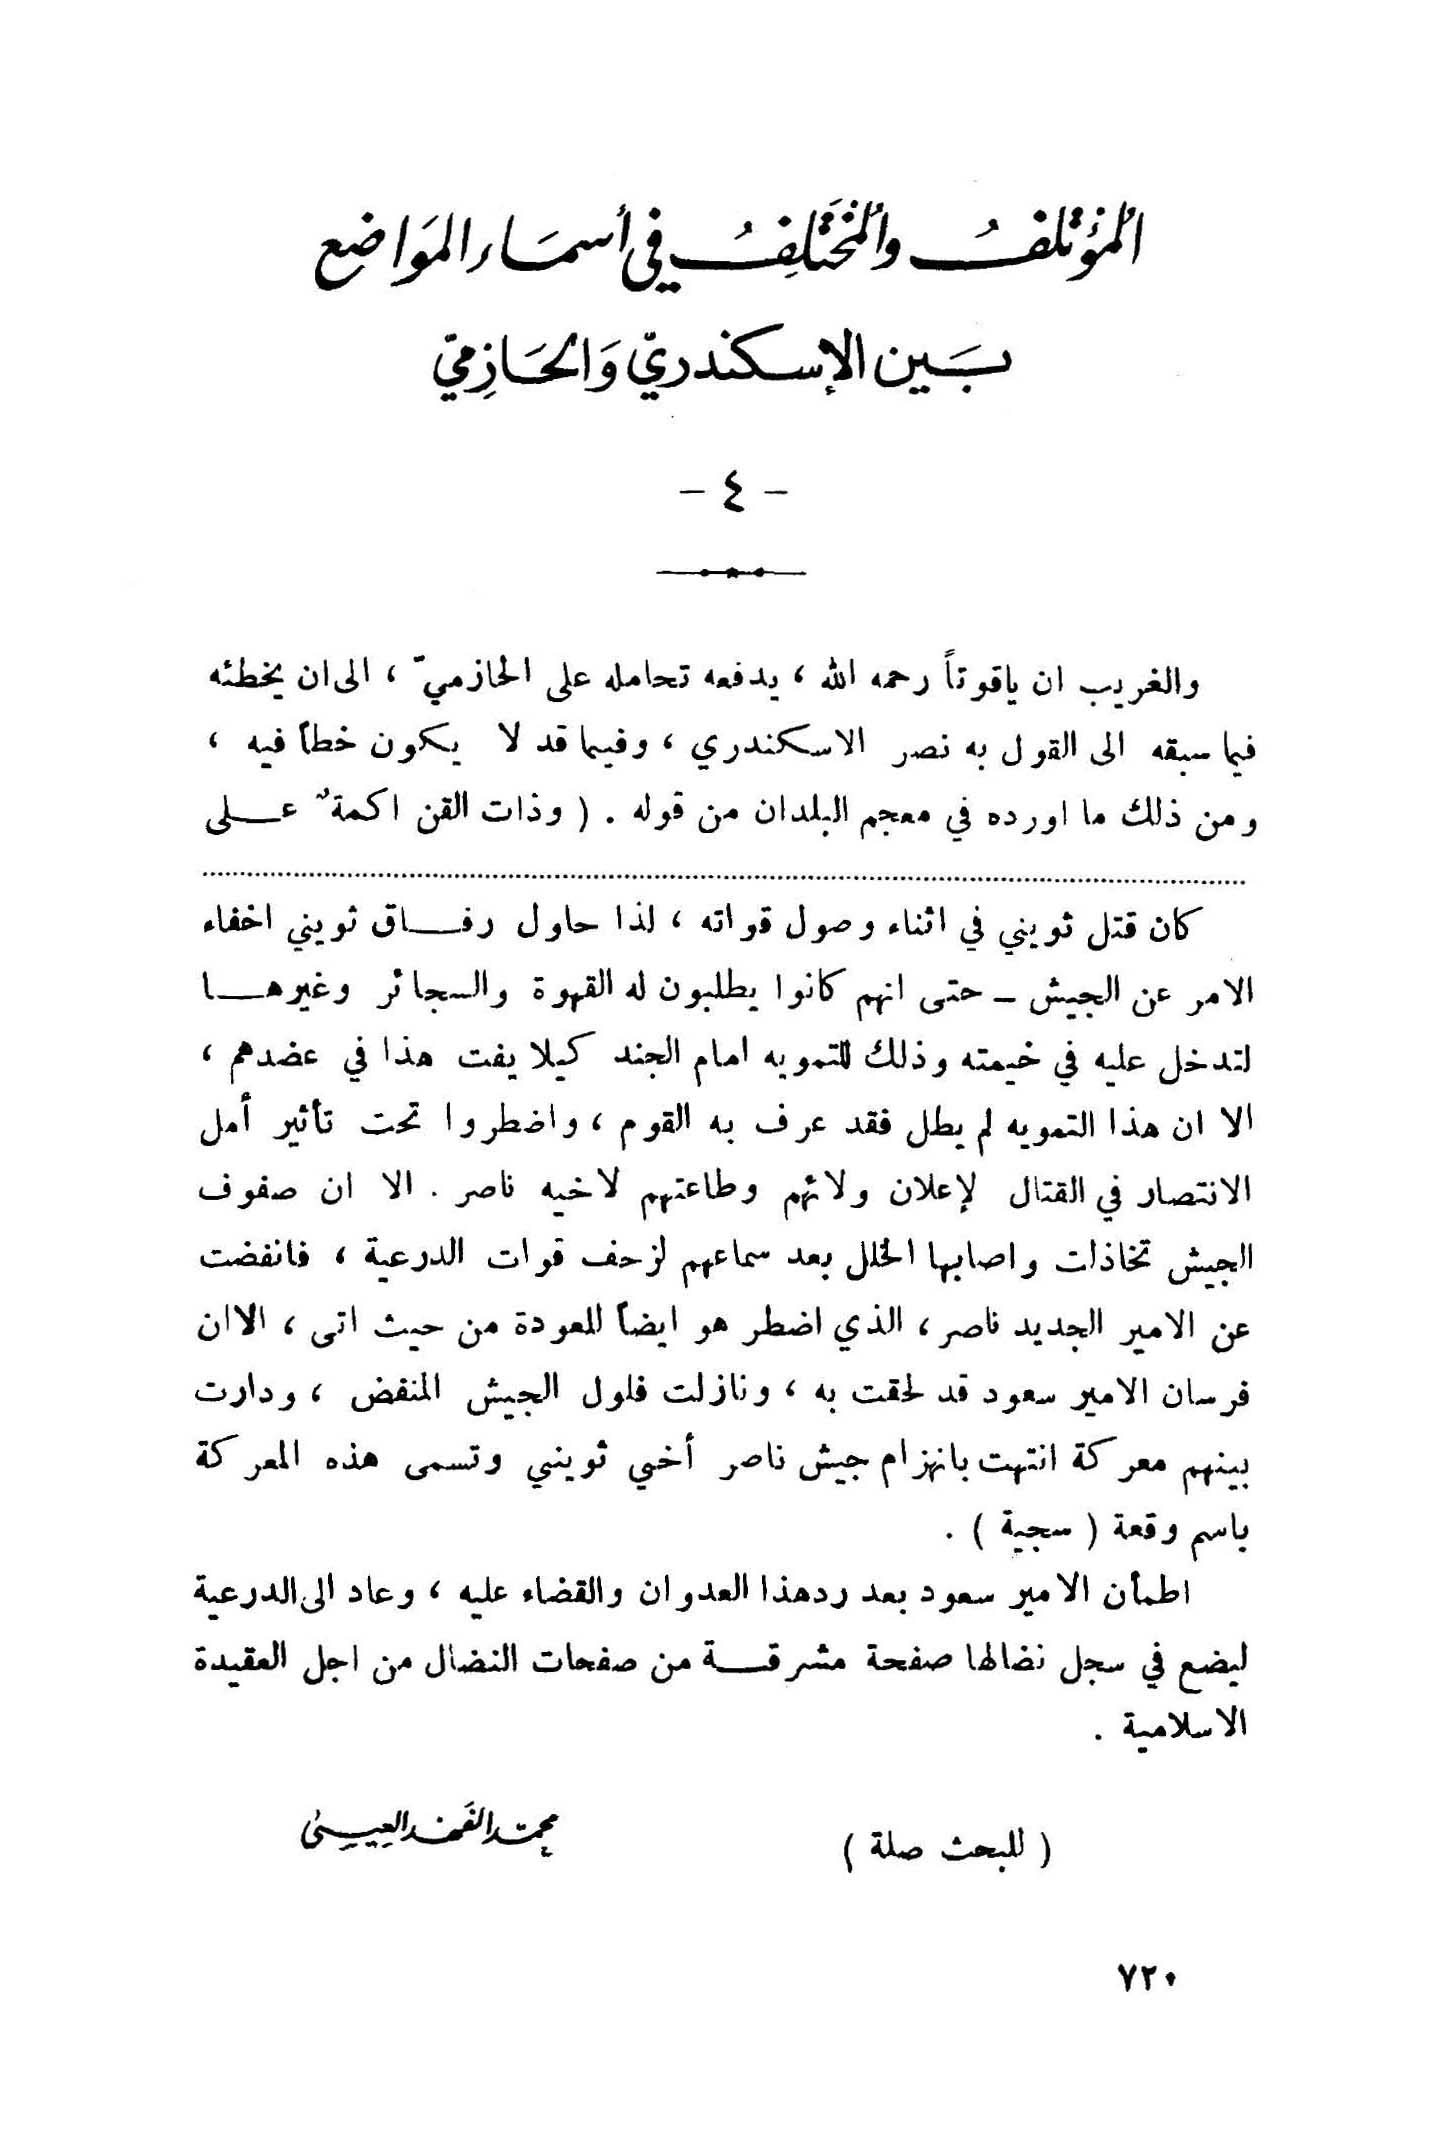 المؤتلفُ والمُختَلِفُ في أسمَاء المَوَاضع
بَين الإسكندريّ وَالحَازِميّ
- ٤ -
والغريب ان ياقوتاً رحمه الله ، يدفعه تحامله على الحازميّ ، الى ان يخطئه
فيما سبقه الى القول به نصر الاسكندري ، وفيما قد لا يكون خطأ فيه ،
ومن ذلك ما اورده في معجم البلدان من قوله . ( وذات القن اكمةٌ عــلى
كان قتل ثويني في اثناء وصول قواته ، لذا حاول رفــاق ثويني اخفاء
الامر عن الجيش – حتى انهم كانوا يطلبون له القهوة والسجائر وغيرهــا
لتدخل عليه في خيمته وذلك للتمويه امام الجند كيلا يفت هذا في عضدهم ،
الا ان هذا التمويه لم يطل فقد عرف به القوم ، واضطروا تحت تأثير أمل
الانتصار في القتال لإعلان ولائهم وطاعتهم لاخيه ناصر . الا ان صفوف
الجيش تخاذلت واصابها الخلل بعد سماعهم لزحف قوات الدرعية ، فانفضت
عن الامير الجديد ناصر ، الذي اضطر هو ايضاً للعودة من حيث اتى ، الا ان
فرسان الامير سعود قد لحقت به ، ونازلت فلول الجيش المنفض ، ودارت
بينهم معركة انتهت بانهزام جيش ناصر أخي ثويني وتسمى هذه المعركة
باسم وقعة ( سجية ) .
اطمأن الامير سعود بعد رد هذا العدوان والقضاء عليه ، وعاد الى الدرعية
ليضع في سجل نضالها صفحة مشرقــة من صفحات النضال من اجل العقيدة
الاسلامية .
( للبحث صلة )
محمد الفهد العيسى
٧٢٠